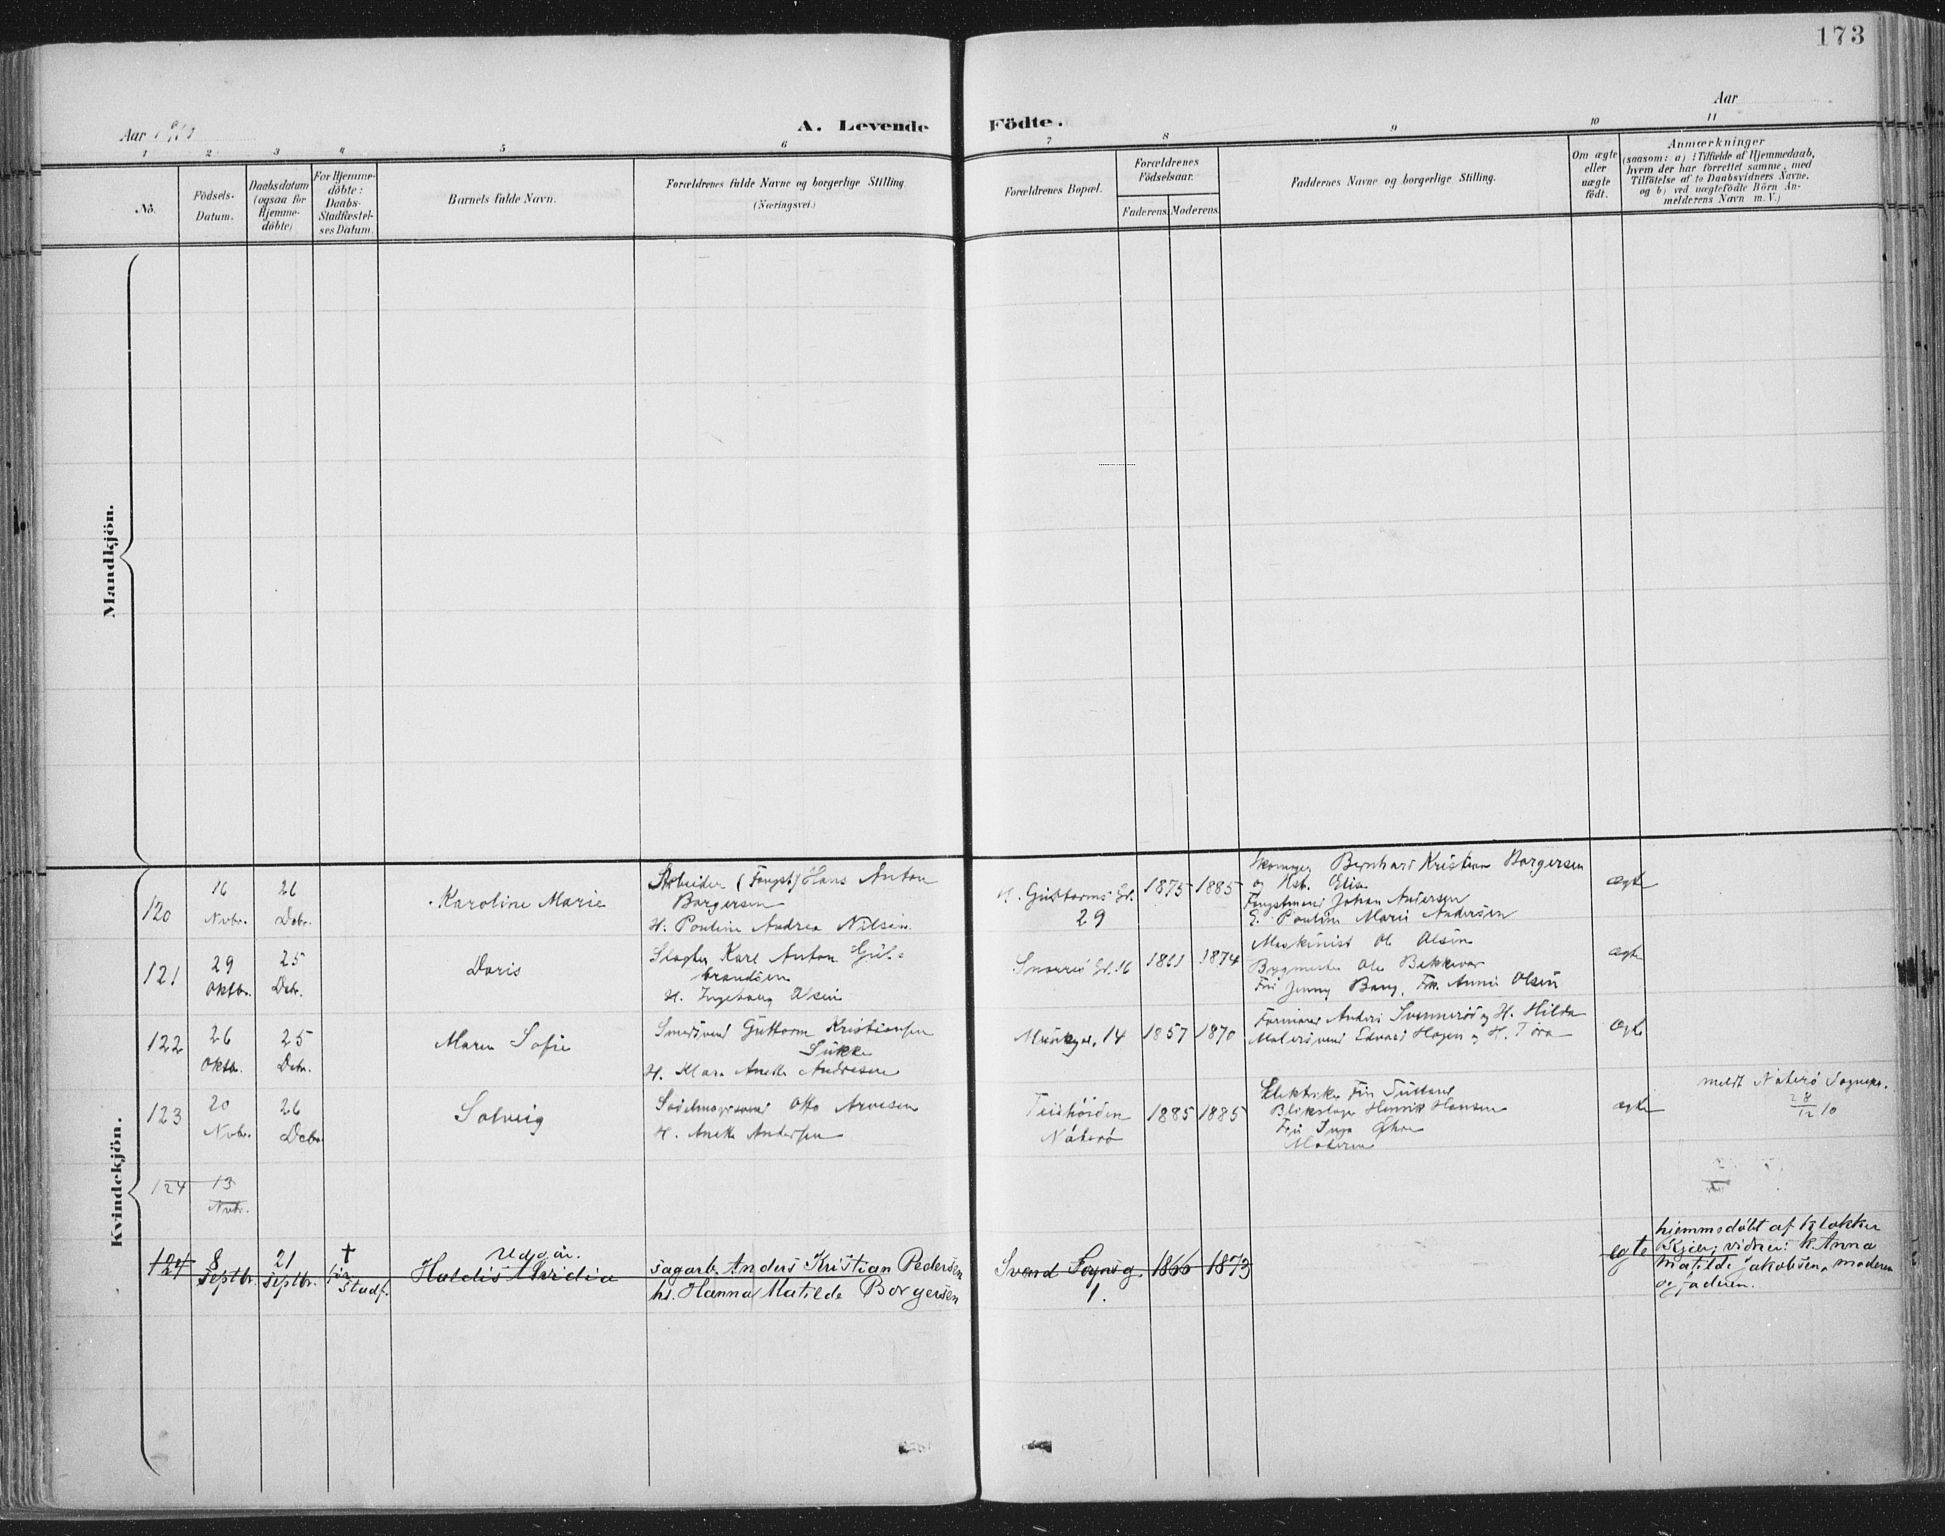 173
Aar
A. Levende Födte.
Aar
1 2 3 4 5 6 7 8 9 10 11
No.
Födsels-
Datum.
Daabsdatum
(ogsaa for
Hjemme-
döbte)
For Hjemme-
döbte:
Daabs-
Stadfæstel-
ses Datum.
Barnets fulde Navn.
Forældrenes fulde Navne og borgerlige Stilling.
(Næringsvei.)
Forældrenes Bopæl.
Forældrenes
Födselsaar.
Faderens. Moderens.
Faddernes Navne og borgerlige Stilling.
Om ægte
eller
uægte
født.
Anmærkninger
(saasom: a) i Tilfælde af Hjemmedaab,
hvem der har forrettet samme, med
Tilføielse af to Daabsvidners Navne.
og b) ved uægtefödte Börn An-
melderens Navn m. V.)
Mandkjön.
Kvindekjön.
120
16
Novbr.
26
Debr.
Karoline Marie
Arbeider (Fangst) Hans Anton
Borgersen
H. Pouline Andrea Nilsen
Guttorms Gd.
29
1875 1885
Bernhard Kristian Borgersen
og Hst. Elise
Fangstmand Johan Andersen
E. Pouline Marie Andersen
ægte
121
29
Oktbr.
25
Debr.
Doris
Slagter Karl Anton Gul-
brandsen
H. Ingeborg Olsen
Snorres Gd. 16
1861 1874
Maskinist Ole Olsen
Bygmester Ole Bakkevar
Fru Jenny Bang, Frk. Anna Olsen
ægte
122
26
Oktb.
25
Debr.
Maren Sofie
Smedsvend Guttorm Kristiansen
Sukke
H. Mara Anette Andresen
Munkegd. 14
1857 1870
Formand Anders Svennerös og H. Hilda
Malersvend Edvard Hagen og H. Tora
ægte
123
20
Novbr.
26
Debr
Solveig
Sadelmagersvend Otto Arvesen
H. Anette Andersen
Teiehöiden
Nöterö
1885 1885
Blikslager Henrik Hansen
Fru Inga
Moderen
ægte
meldt Nøterø Sognepr.
28/12 10
124
13
Novbr.
124
8
Septbr.
21
Septbr.
†
før
Stadf.
Udgår.
Haldis Alvidia
sagarb. Anders Kristian Pedersen
hs. Hanna Matilde Borgersen
Svend Foynsg.
1.
1866 1873
egte
hjemmedøbt af Klokker
Kjær, vidner: k. Anna
Matilde Jakobsen, moderen
og faderen.